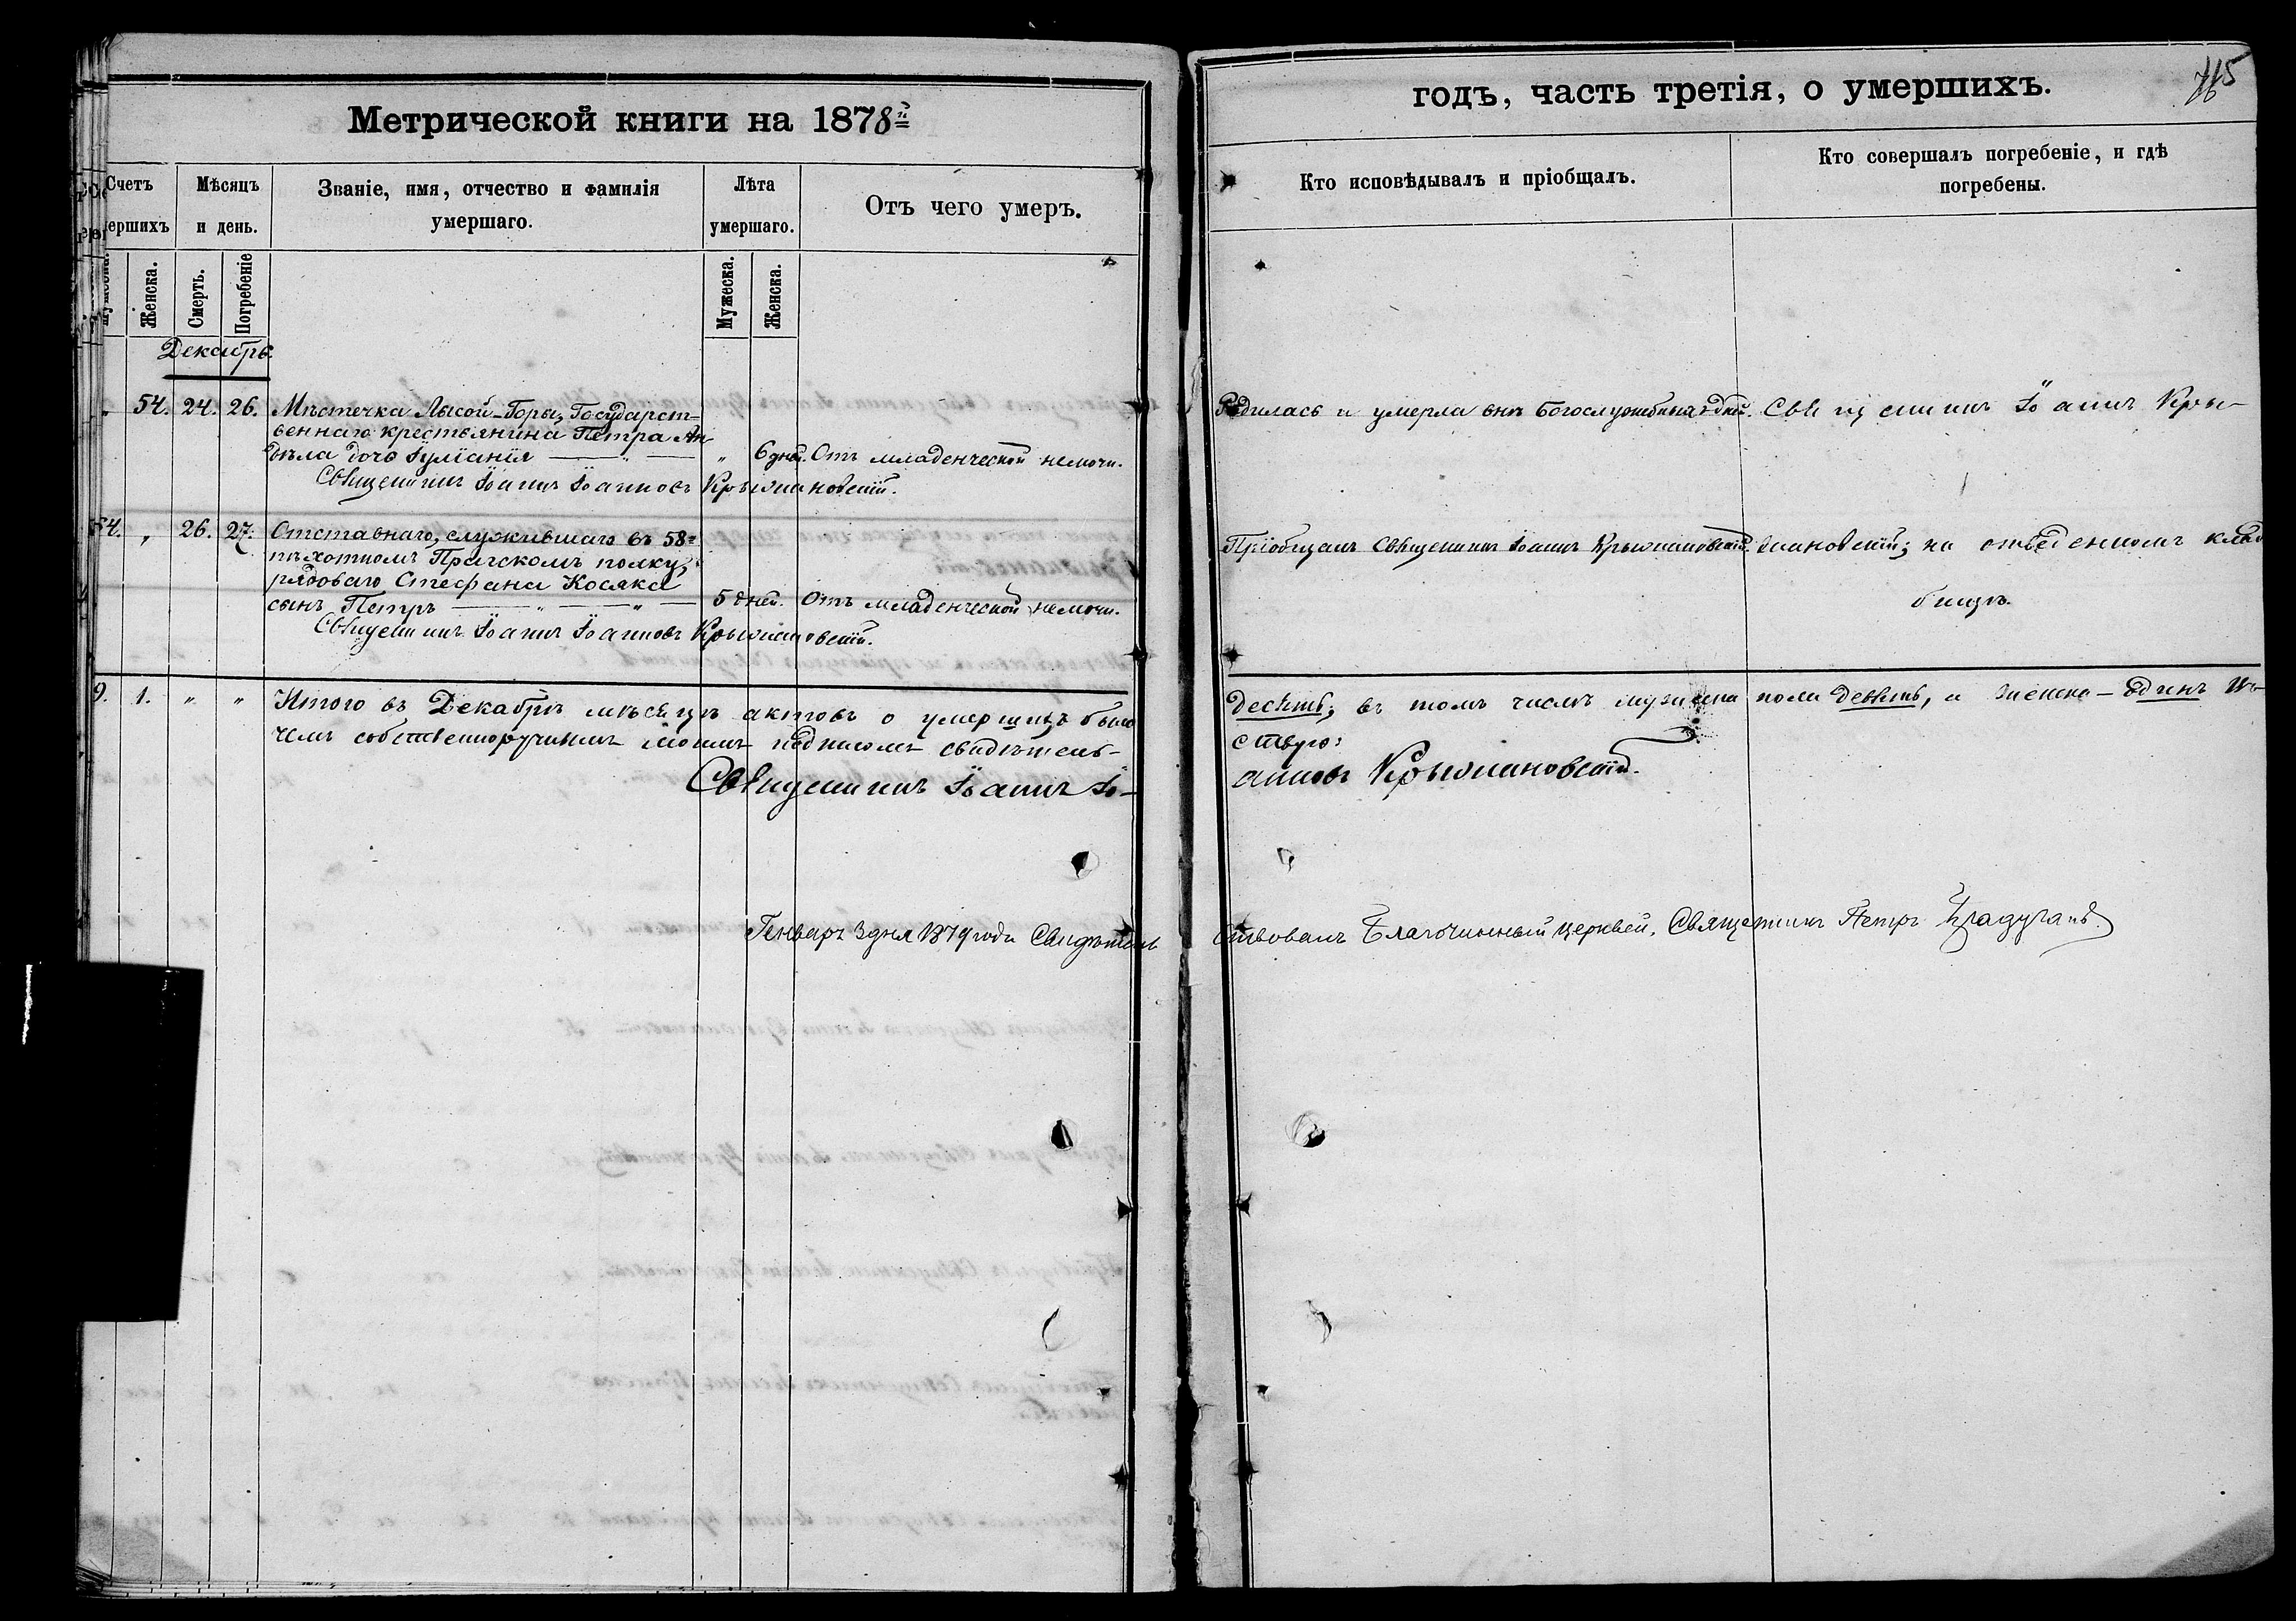 Метрической книги на 1878й
годъ, часть третія, о умершихъ.
Счетъ
ершихъ
Женска.
Мѣсяцъ
и день.
Смерть.
Погребеніе
Званіе, имя, отчество и фамилія
умершаго.
Лѣта
умершаго.
Мужеска.
Женска.
Отъ чего умеръ.
Кто исповѣдывалъ и пріобщалъ.
Кто совершалъ погребеніе, и гдѣ
погребены.
Декабрь
„ 54. 24. 26. Мѣстечка Лысой-Горы, Государст-
веннаго крестьянина, Петра Ан-
дѣла дочь Іуліанія — „ — „ 6 дней. Отъ младенческой немочи.
Священникъ Іоаннъ Іоанновъ Крыжановскій.
Родилась и умерла внѣ богослужебныхъ дней.
Священникъ Іоаннъ Кры-
54. „ 26. 27. Отставнаго, служившаго въ 58=
пѣхотномъ Прагскомъ полку,
рядоваго Стефана Косяка
сынъ Петръ — „ — „ — 5 дней. Отъ младенческой немочи.
Священникъ Іоаннъ Іоанновъ Крыжановскій.
Пріобщалъ Священникъ Іоаннъ Крыжановскій.
жановскій; на отведенномъ клад
бищѣ.
9. 1. „ „ Итого въ Декабрѣ мѣсяцѣ актовъ о умершихъ было
десять; въ томъ числѣ мужеска пола девять, а женска – одинъ въ
чемъ собственноручнымъ моимъ подписомъ свидѣтель-
ствую:
Священникъ Іоаннъ Іо-
анновъ Крыжановскій.
Генваря 3 дня 1879 года Свидѣтель
ствовалъ Благочинный церквей, Священникъ Петръ